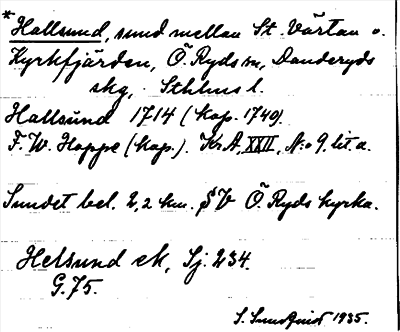 * Hallsund, sund mellan St. Värtan o.
Kyrkfjärden, Ö. Ryds sn, Danderyds
skg, Sthlms l.
Hallsund 1714 (kop. 1740)
F. W. Hoppe (kop.). Kr.A, XXII, N:o 9. lit. a.
Sundet bel. 2,2 km. SV Ö. Ryds kyrka.
Helsund ek, Sj. 234.
G. 75.
S. Sundqvist 1935.